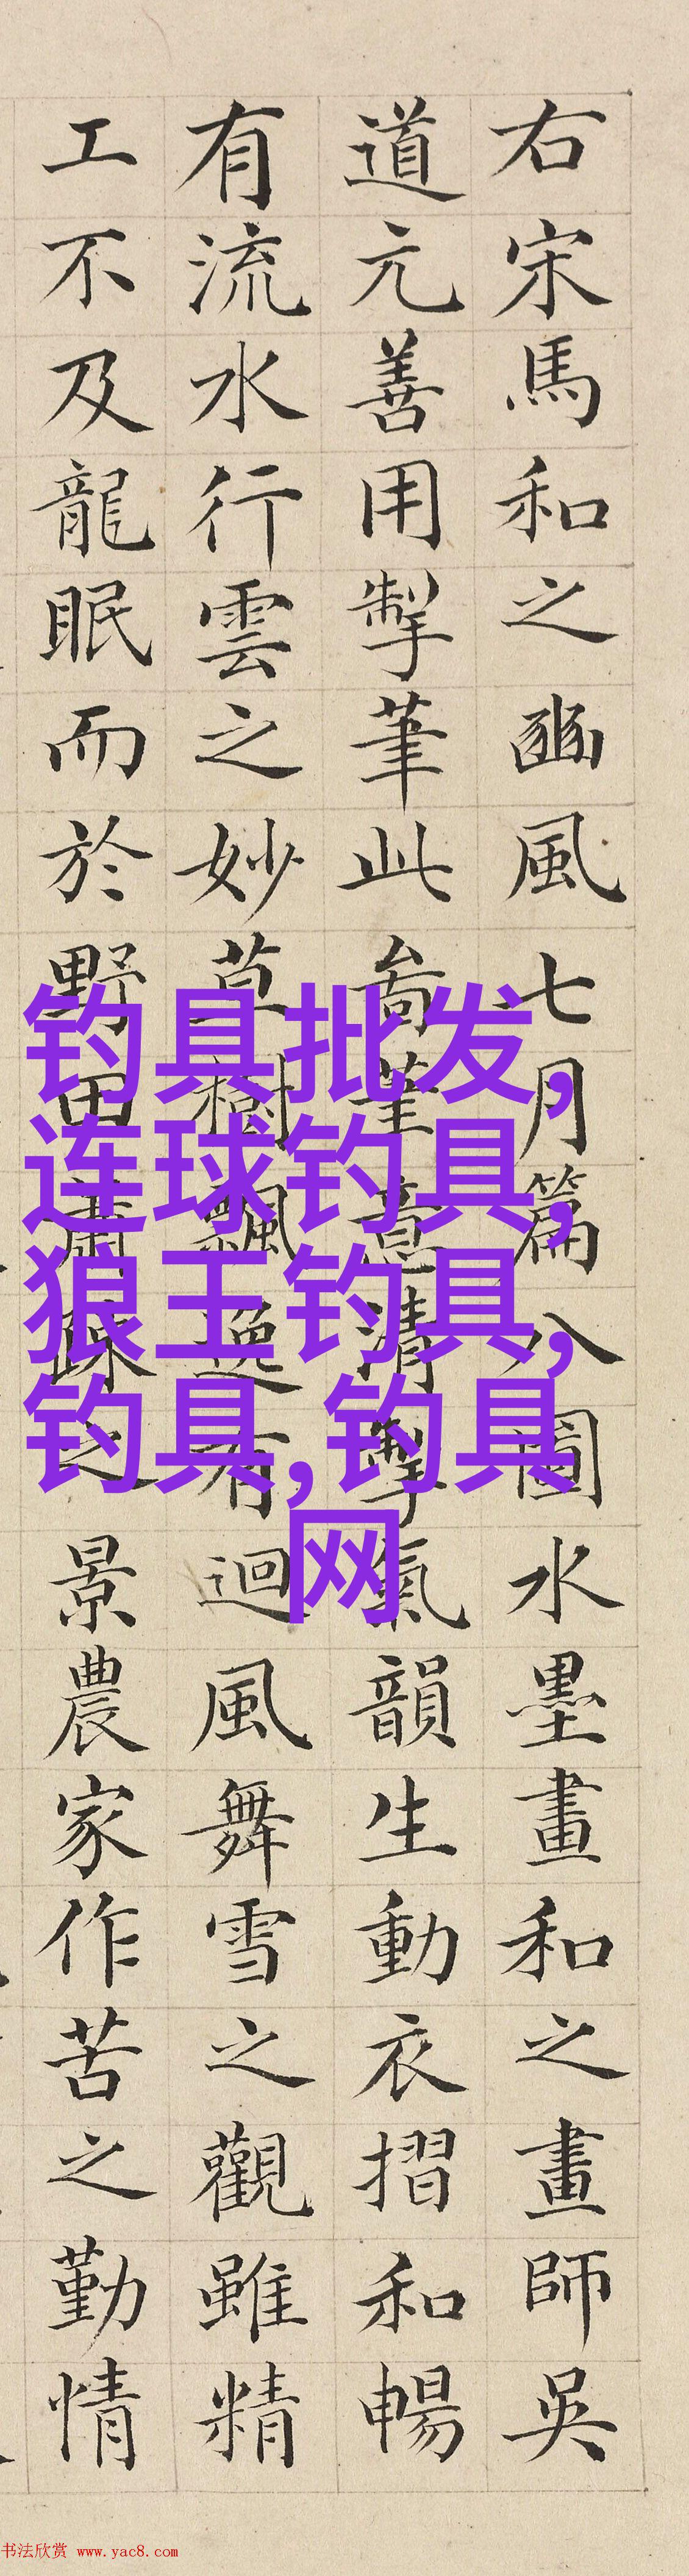 右宋馬和之豳風七月篇八圖水墨畫和之畫師吳
道元善用掣筆此筆意清掣氣韻生動衣摺和暢
有流水行雲之妙草樹飄逸有迴風舞雪之觀雖精
工不及龍眠而於野田蕭疎之景農家作苦之勤情
钓具批发,
连球钓具,
狼王钓具,
钓具,钓具
网
书法欣赏 www.yac8.com